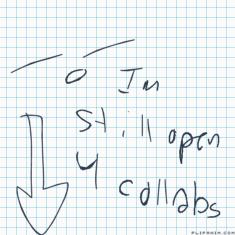 Im
still open
4
collabs
FLIPANIM.COM